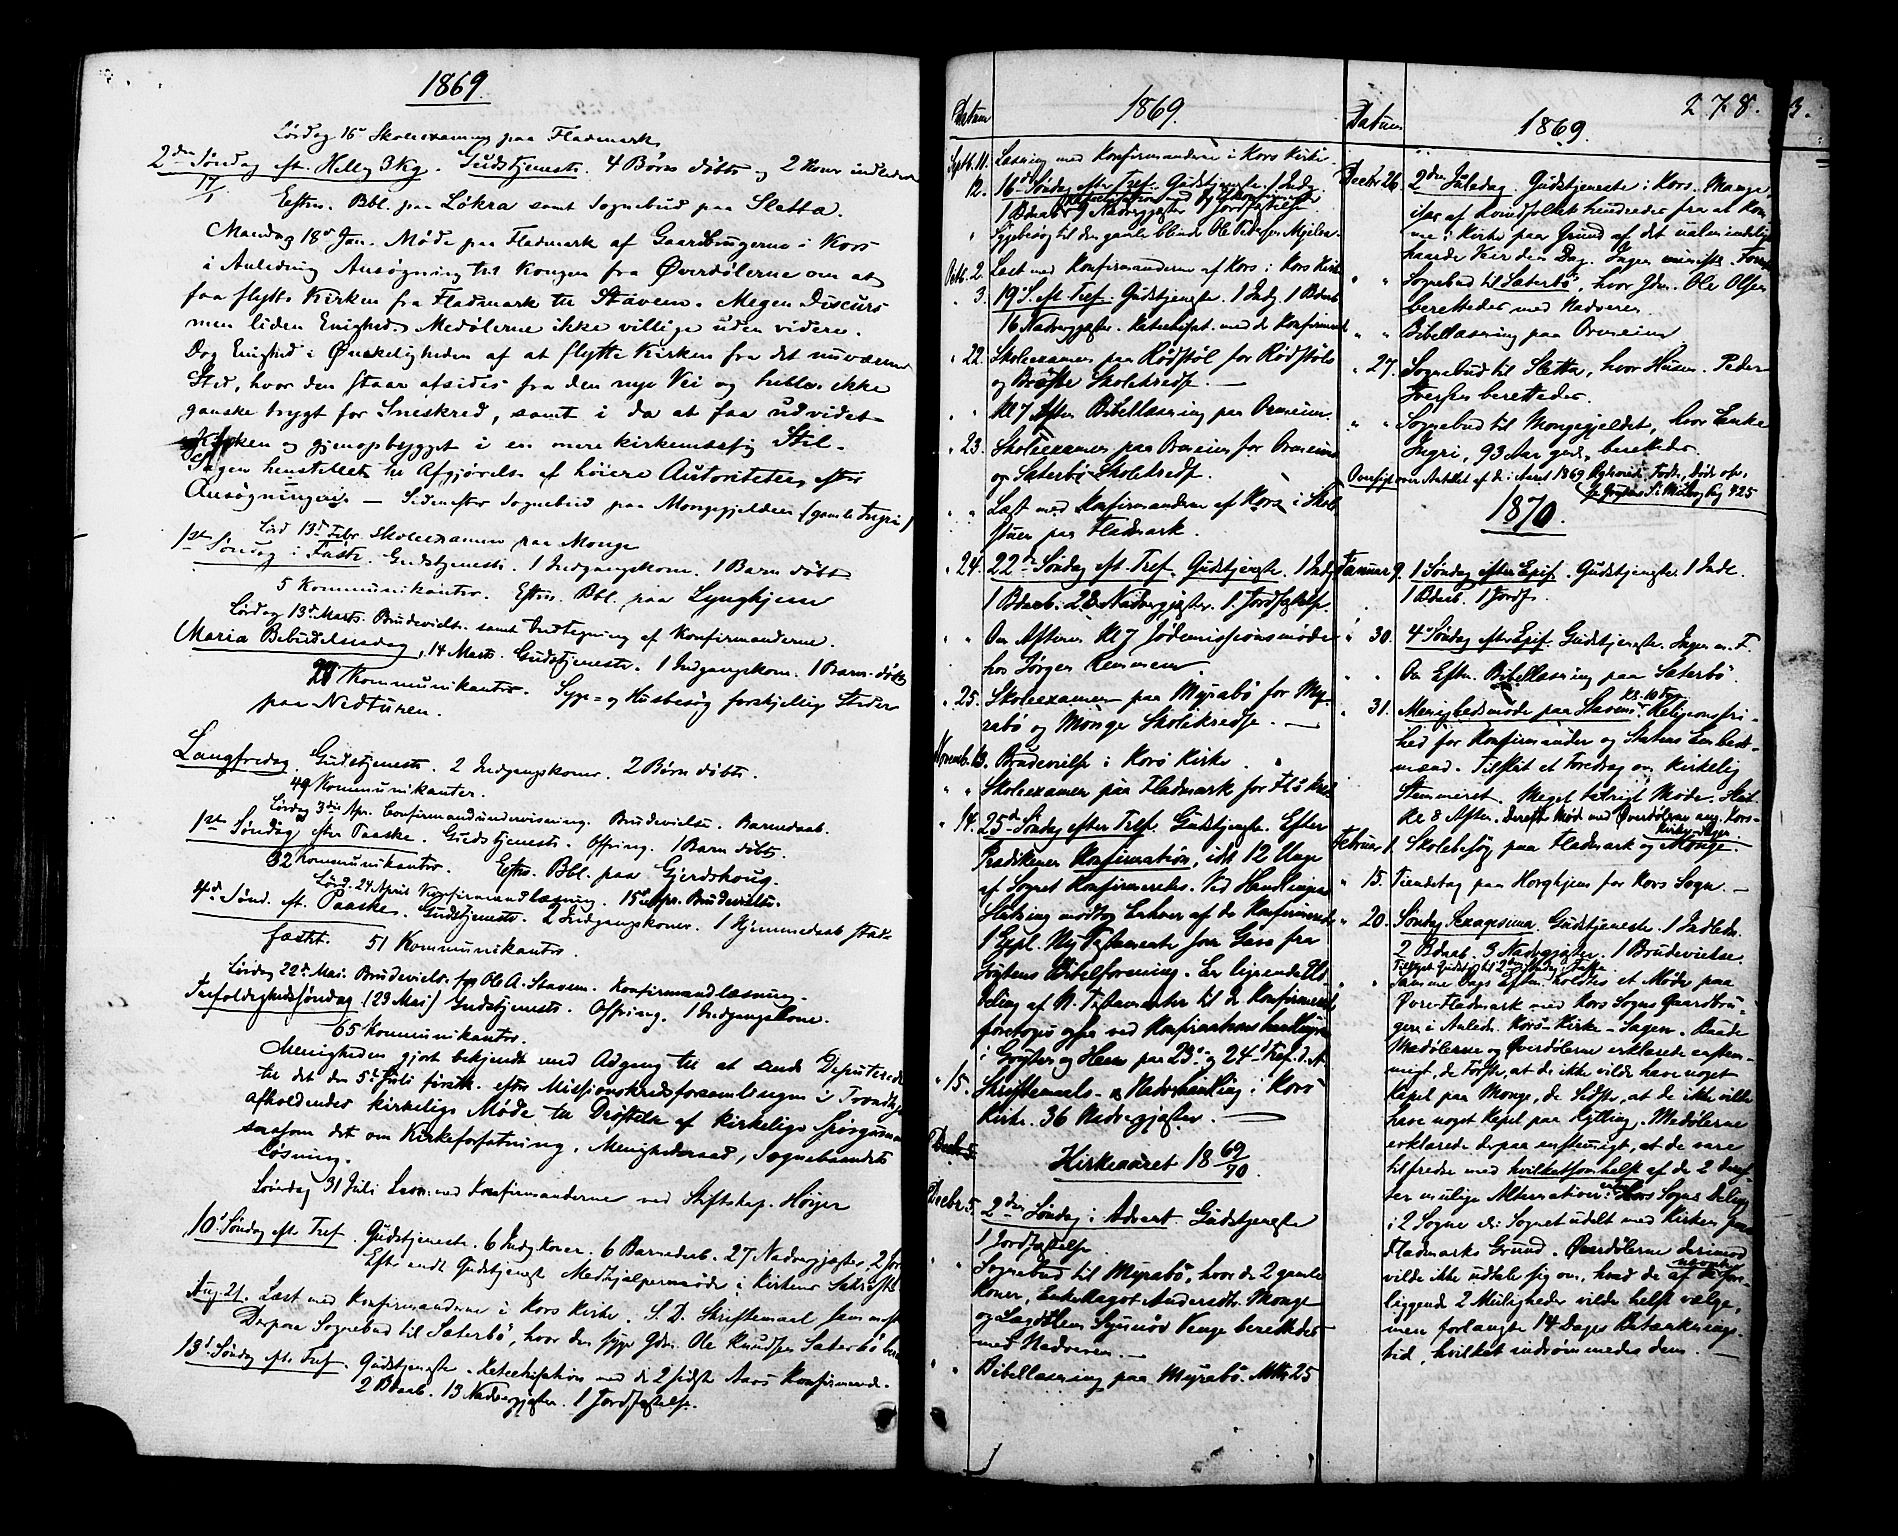 1869.
Lørdag 16de Skoleexamen paa Fladmark
2den Søndag eft. Hellig 3 Kg. Gudstjeneste. 4 Børn døbte og 2 Koner indledede
17/1 Eftm. Bbl. paa Løkra samt Sognebud paa Sletta.
Mandag 18de Jan. Møde paa Fladmark af Gaardbrugerne i Kors
i Anledning Ansøgning til Kongen fra Øverdølerne om at
faa flytte Kirken fra Fladmark til Stavem. Megen Discurs
men liden Enighed. Medølerne ikke villige uden videre.
Dog Enighed i Ønskeligheden af at flytte Kirken fra det nuværende
Sted, hvor den staar afsides fra den nye Vei og heller ikke
ganske trygt for Sneskred, samt i da at faa udvidet
Kirken og gjenopbygget i en mere kirkemæssig Stil.
Sagen henstillet til Afgjørelse af høiere Autoriteter efter
Ansøgningen. — Sidenefter Sognebud paa Mongegjeldet (gamle Ingri)
Lørd 13de Febr. Skoleexamen paa Monge
1ste Søndag i Faste. Gudstjeneste. 1 Indgangskone. 1 Barn døbt
5 Kommunikanter. Eftm. Bbl. paa Lyngheim
Lørdag 13de Marts. Brudevielse samt Indtegning af Konfirmanderne.
Maria Bebudelsesdag, 14 Marts. Gudstjeneste. 1 Indgangskone. 1 Barn døbt
Kommunikanter. Syge- og Husbesøg forskjellige Steder
paa Nedturen.
Langfredag. Gudstjeneste. 2 Indgangskoner. 2 Børn døbte.
49 Kommunikanter.
Lørdag 3die Apr. Confirmandundervisning. Brudevielse. Barnedaab.
1ste Søndag efter Paaske. Gudstjeneste. Offring. 1 Barn døbt.
32 Kommunikanter. Eftm. Bbl. paa Gjerdshoug.
Lørd. 24 April Konfirmandlæsning. 15de Apr. Brudevielse.
4de Sønd. eft. Paaske. Gudstjeneste. 2 Indgangskoner. 1 Hjemmedaab stad-
fæstet. 51 Kommunikanter.
Lørdag 22de Mai. Brudevielse for Ole A. Stavem. Konfirmandlæsning.
Trefoldighedssøndag (23 Mai) Gudstjeneste. Offring. 1 Indgangskone.
65 Kommunikanter.
Menigheden gjort bekjendt med Adgang til at sende Deputerede
til det den 5te Juli førstk. efter Missionskredsforsamlingen i Trondhj.
afholdendes kirkelige Møde til Drøftelse af kirkelige Spørgsmaal
saasom det om Kirkeforfatning, Menighedsraad, Sognebaandets
Løsning.
Lørdag 31 Juli Læsn. med Konfirmanderne ved Stiftskap. Høyer
10de Søndag eft. Tref. Gudstjeneste. 6 Indg.koner. 6 Barnedaab. 27 Nadvergjæster. 2 Jor
Efter endt Gudstjeneste Medhjælpermøde i Kirkens Sakristi.
Aug. 21. Læst med Konfirmanderne i Kors Kirke. S. D. Skriftemaal sammesteds
Derpaa Sognebud til Sæterbø, hvor den syge Gdm. Ole Knudsen Sæterbø
13de Søndag eft. Tref. Gudstjeneste. Katechisation med de 2 sidste Aars Konfirmerede.
2 Bdaab. 13 Nadvergjæster. 1 Jordfæstelse.
Datum
1869.
Septb. 11. Læsning med Konfirmanderne i Kors Kirke.
12. 16de Søndag efter Tref. Gudstjeneste. 1 Indg.
1 Bdaab 9 Nadvergjæster 1 Jordfæstelse
" Sygebesøg til den gamle blinde Ole Pedersen
Octb. 2. Læst med Konfirmanderne af Kors i Kors Kirke
" 3. 19de S. eft Tref. Gudstjeneste. 1 Indg. 1 Bdaab
16 Nadvergjæster. Katechisat. med de Konfirmerede
" 22. Skoleexamen paa Rødstøl for Rødstøls
og Brøste Skolekredse. —
" " Kl 7 Aften Bibellæsning paa Ormeim.
" 23. Skoleexamen paa Ormeim for Ormeims
og Sæterbø Skolekredse.
" " Læst med Konfirmanderne af Kors i Skole-
stuen paa Fladmark.
" 24. 22de Søndag eft. Tref. Gudstjeneste. 1 Indg
1 Bdaab. 28 Nadvergjæster. 1 Jordfæstelse.
" " Om Aftenen Kl 7 Jødemissionsmøde
hos Jørgen Remmem
" 25. Skoleexamen paa Myrabø for My-
rabø og Monge Skolekredse. —
Novemb. 13. Brudevielse i Kors Kirke.
" " Skoleexamen paa Fladmark for Fl's Kreds
" 14. 25de Søndag efter Tref. Gudstjeneste. Efter
Prædikenen Konfirmation, idet 12 Unge
af Sognet Konfirmeredes. Ved Handlingens
Slutning modtog Enhver af de Konfirmerede
1 Expl. Ny Testamente som Gave fra
Grytens Bibelforening. En lignende Ud-
deling af N. Testamenter til de Konfirmerede
foretoges ogsaa ved Konfirmationshandlingen
i Gryten og Hen paa 23de og 24de Tref. d. A.
" 15. Skriftemaals- og Nadverhandling i Kors
Kirke. 36 Nadvergjæster. —
Kirkeaaret 18 69/70.
Decbr. 5. 2den Søndag i Advent. Gudstjeneste
1 Jordfæstelse
" " Sognebud til Myrabø, hvor de 2 gamle
Koner, Enke Ragot Andersdtr. Monge
og Lægdslem Synnøv Venge berettedes
med Nadveren. —
" " Bibellæsning paa Myrabø. Mtth 25
Datum
1869.
278.
Decbr 26. 2den Juledag. Gudstjeneste i Kors. Mange,
især af Kvindfolket hindredes fra at kom-
me i Kirke paa Grund af det ualmindelig
haarde Veir den Dag. Ingen minist. Forr.
" " Sognebud til Sæterbø, hvor Gdm. Ole Olsen
berettedes med Nadveren
" " Bibellæsning paa Ormeim
" 27. Sognebud til Sletta, hvor Husm. Peder
Iversen berettedes.
" " Sognebud til Mongegjeldet, hvor Enke
Ingri, 93 Aar gml., berettedes.
Oversigt over Antallet af de i Aaret 1869 Confirmerede, Fødte, Døde osv.
1870.
Januar 9. 1 Søndag efter Epif. Gudstjeneste. 1 Indl.
1 Bdaab. 1 Jordf.
" 30. 4de Søndag efter Epif. Gudstjeneste. Ingen m. F.
" " Om Eftm. Bibellæsning paa Sæterbø.
Kl. 10 Form.
" 31. Menighedsmøde paa Stavem. Religionsfri-
hed for Konfirmander og Statens Embeds-
mænd. Tilslut et Foredrag om kirkelig
Stemmeret. Meget talrigt Møde. Slut
Kl 8 Aften. Derefter Møde med Øverdølerne ang. Kors-
Kirke-Sagen.
Februar 1. Skolebesøg paa Fladmark og Monge.
" 15. Tiendetag paa Horghjem for Kors Sogn. —
" 20. Søndag Sexagesima. Gudstjeneste. 1 Indledn.
2 Bdaab. 3 Nadvergjæster. 1 Brudevielse.
Tillyst Gudstj. til 2den Søndag i Faste.
" " Samme Dags Eftm. holdtes et Møde paa
Øvre-Fladmark med Kors Sogns Gaardbru-
gere i Anledn. Kors-Kirke-Sagen. Baade
Medølerne og Øverdølerne erklærede enstem-
migt, de Første, at de ikke vilde have noget
Kapel paa Monge, de Sidste, at de ikke vilde
have noget Kapel paa Kylling. Medølerne
erklærede derpaa enstemmigt, at de vare
tilfredse med hvilketsomhelst af de 2 deref-
ter mulige Alternativer: enten Kors Sogns Deling
i 2 Sogne el. Sognet udelt med Kirken paa
Fladmarks Grund. Øverdølerne derimod
vilde ikke udtale sig om, hvad de af de nævnte fore-
liggende 2 Muligheder vilde helst vælge,
men forlangte 14 Dages Betænknings-
tid, hvilket indrømmedes dem. —